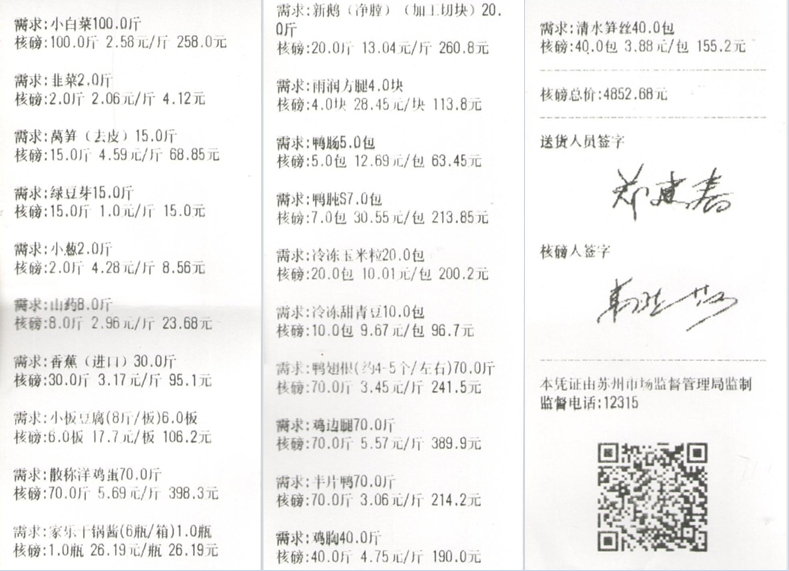 需求:小白菜100.0斤
核磅:100.0斤 2.58元/斤 258.0元
需求:韭菜2.0斤
核磅:2.0斤 2.06元/斤 4.12元
需求:莴笋（去皮）15.0斤
核磅:15.0斤 4.59元/斤 68.85元
需求:绿豆芽15.0斤
核磅:15.0斤 1.0元/斤 15.0元
需求:小葱2.0斤
核磅:2.0斤 4.28元/斤 8.56元
需求:山药8.0斤
核磅:8.0斤 2.96元/斤 23.68元
需求:香蕉（进口）30.0斤
核磅:30.0斤 3.17元/斤 95.1元
需求:小板豆腐(8斤/板)6.0板
核磅:6.0板 17.7元/板 106.2元
需求:散称洋鸡蛋70.0斤
核磅:70.0斤 5.69元/斤 398.3元
需求:家乐干锅酱(6瓶/箱)1.0瓶
核磅:1.0瓶 26.19元/瓶 26.19元
需求:新鹅（净膛）（加工切块）20.
0斤
核磅:20.0斤 13.04元/斤 260.8元
需求:雨润方腿4.0块
核磅:4.0块 28.45元/块 113.8元
需求:鸭肠5.0包
核磅:5.0包 12.69元/包 63.45元
需求:鸭肫S7.0包
核磅:7.0包 30.55元/包 213.85元
需求:冷冻玉米粒20.0包
核磅:20.0包 10.01元/包 200.2元
需求:冷冻甜青豆10.0包
核磅:10.0包 9.67元/包 96.7元
需求:鸭翅根(约4-5个/左右)70.0斤
核磅:70.0斤 3.45元/斤 241.5元
需求:鸡边腿70.0斤
核磅:70.0斤 5.57元/斤 389.9元
需求:半片鸭70.0斤
核磅:70.0斤 3.06元/斤 214.2元
需求:鸡胸40.0斤
核磅:40.0斤 4.75元/斤 190.0元
需求:清水笋丝40.0包
核磅:40.0包 3.88元/包 155.2元
核磅总价:4852.68元
送货人员签字
郑建春
核磅人签字
本凭证由苏州市场监督管理局监制
监督电话:12315